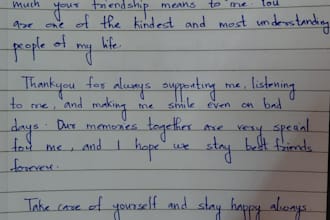 much your friendship means to me. You
are one of the kindest and most understanding
people of my life.
Thankyou for always supporting me, listening
to me, and making me smile even on bad
days. Our memories together are very special
for me, and I hope we stay best friends
forever.
Take care of yourself and stay happy always.